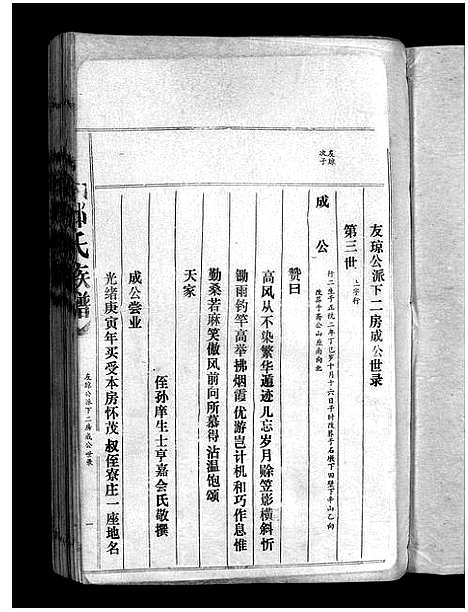 友琼公派下二房成公世录
第三世 上字行
左琼
次子
成公
行二生于正统二年丁巳岁十月十六日子时
改葬于斋公山座南向北
赞曰
高风从不染繁华遁迹几忘岁月赊笠影横斜忻
锄雨钓竿高举拂烟霞优游岂计机和巧作息惟
勤桑若麻笑傲风前向所慕得沾温饱颂
天家
侄孙庠生士亨嘉会氏敬撰
成公尝业
光绪庚寅年买受本房怀茂叔侄寮庄一座地名
氏族谱
左琼公派下二房成公世录
一